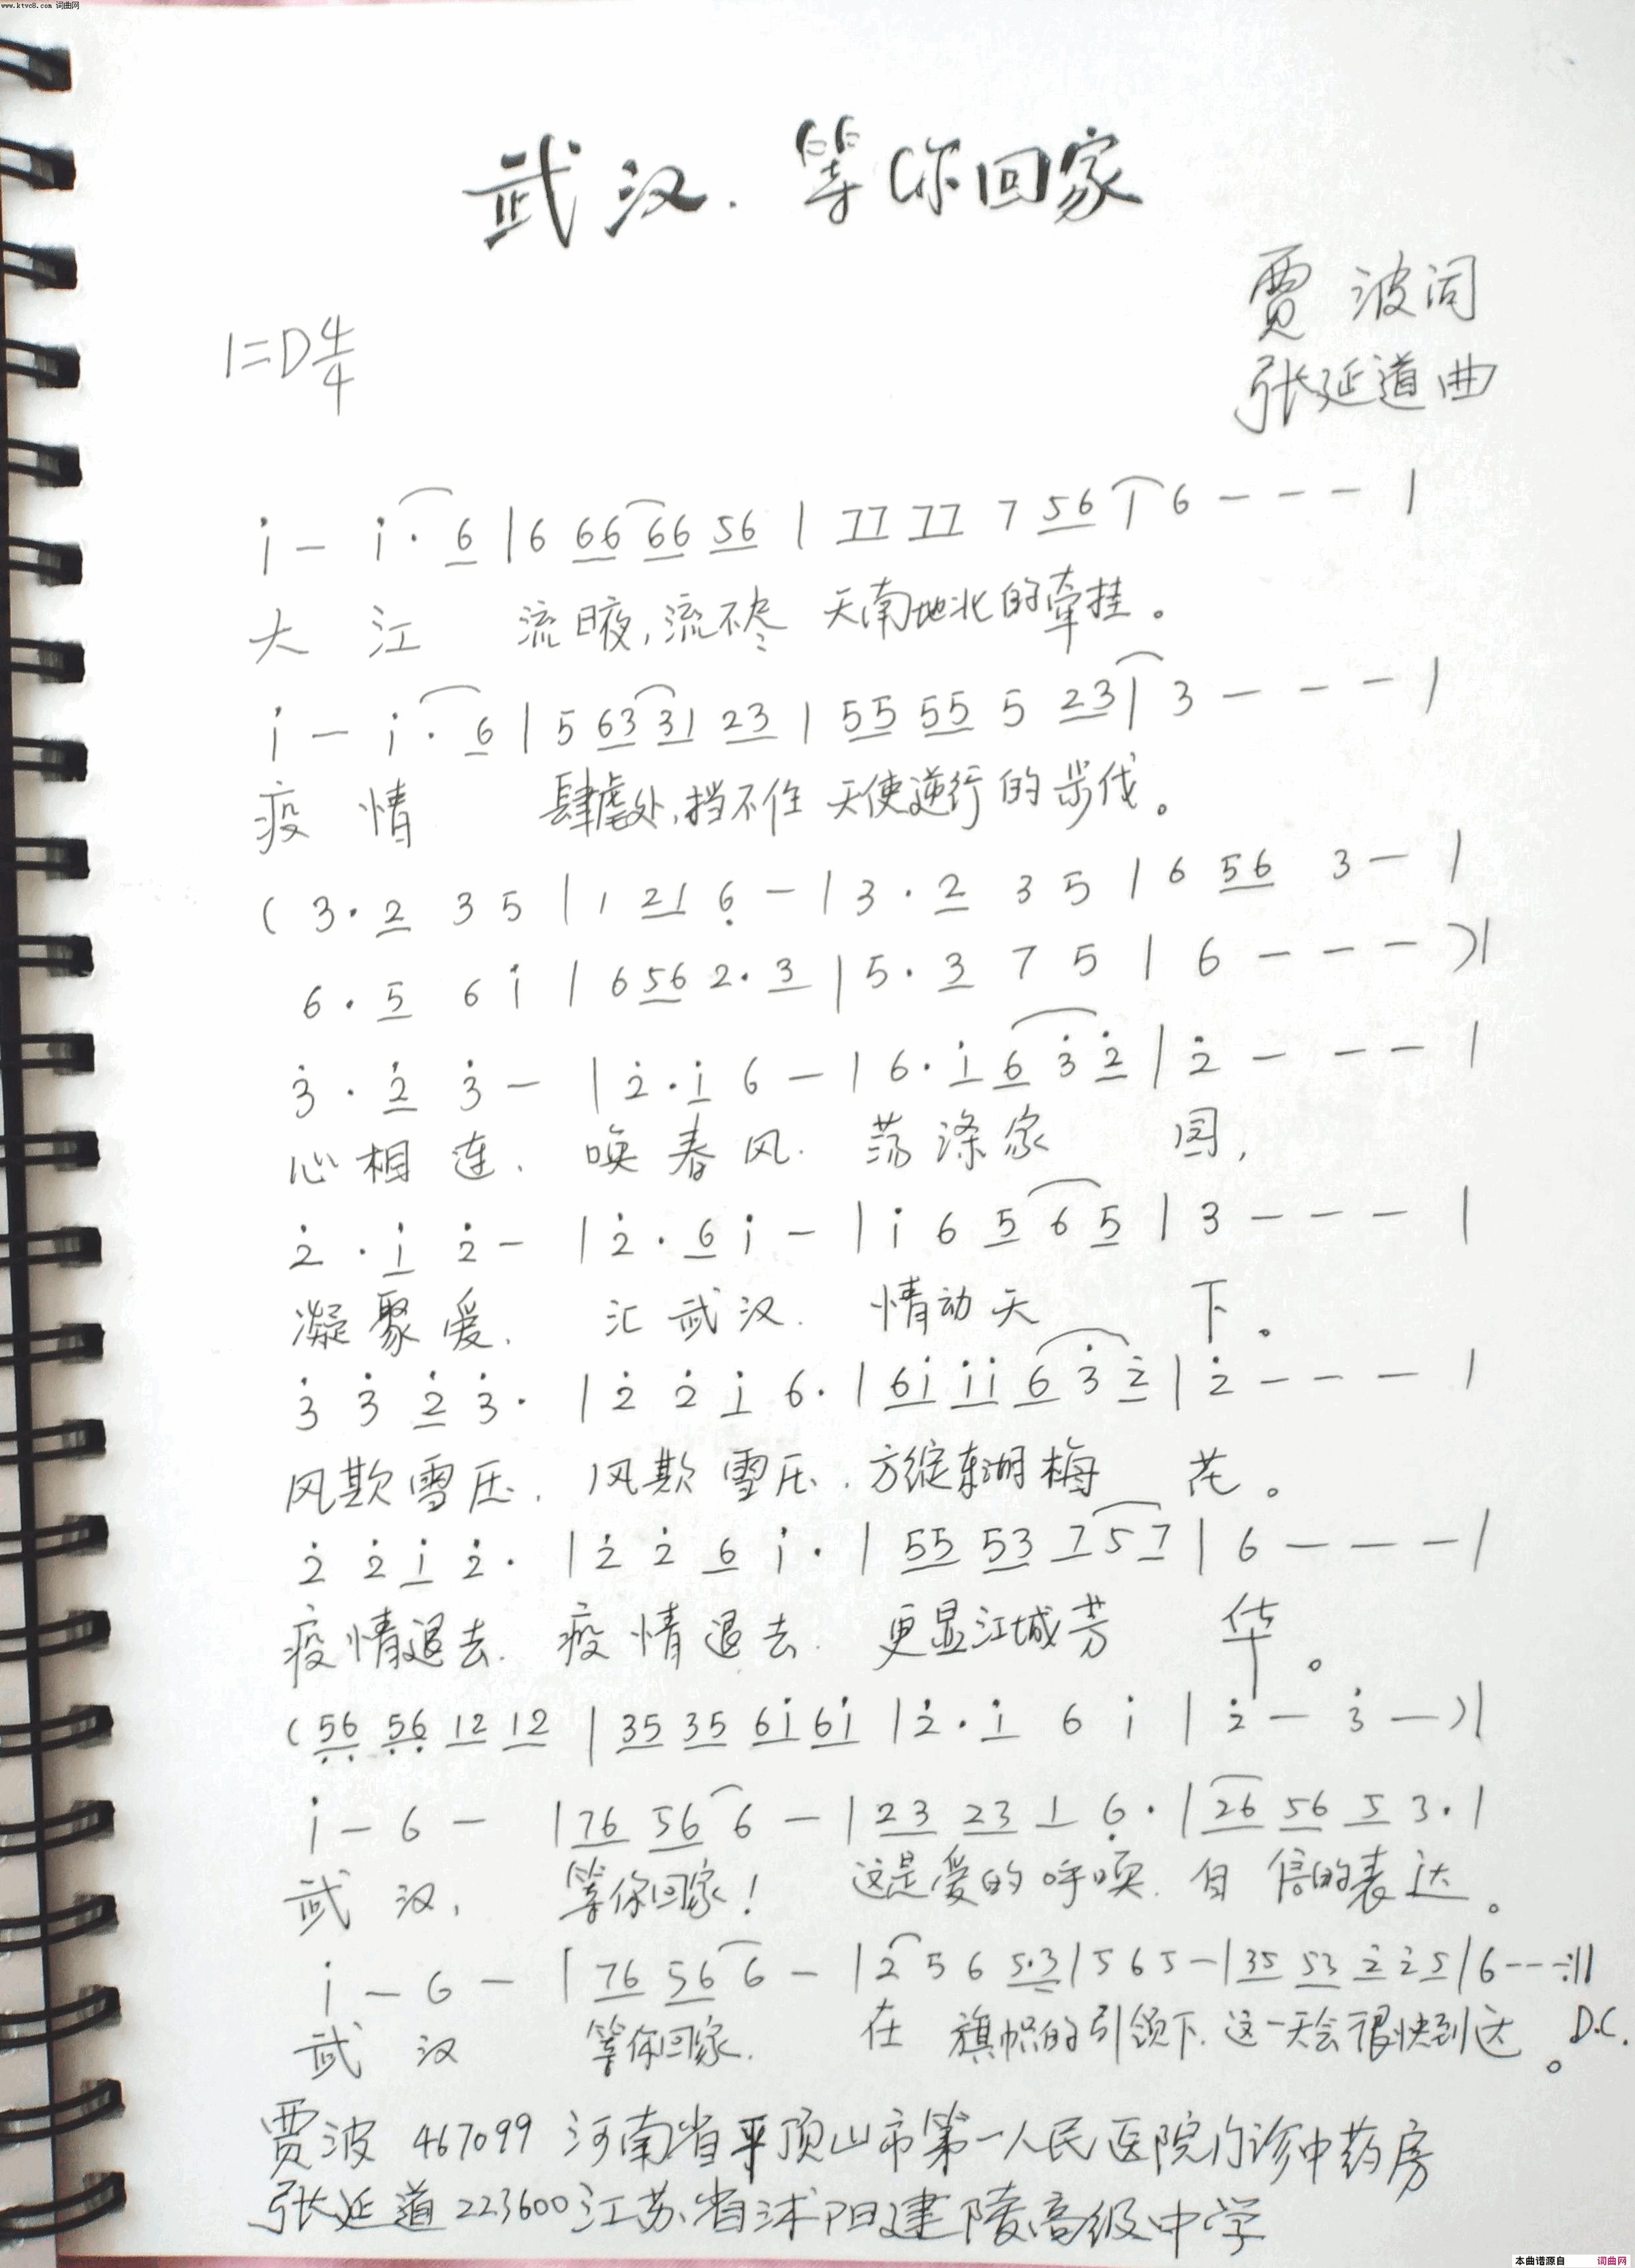 www.ktvc8.com 词曲网
武汉.等你回家
贾 波词
1=D 4/4
张延道曲
i - i· 6 | 6 66 66 56 | 77 77 7 56 | 6 - - - |
大 江 流日夜,流不尽 天南地北的牵挂。
i - i· 6 | 5 63 31 23 | 55 55 5 23 | 3 - - - |
疫 情 肆虐处,挡不住 天使逆行的步伐。
( 3· 2 3 5 | 1 21 6 - | 3· 2 3 5 | 6 56 3 - |
6· 5 6 i | 6 56 2· 3 | 5· 3 7 5 | 6 - - - )|
3· 2 3 - | 2· i 6 - | 6· i 6 3 2 | 2 - - - |
心相连. 唤春风. 荡涤家 园,
2· i 2 - | 2· 6 i - | i 6 5 6 5 | 3 - - - |
凝聚爱. 汇武汉. 情动天 下。
3 3 2 3· | 2 2 i 6· | 6i ii 6 3 2 | 2 - - - |
风欺雪压. 风欺雪压. 方绽东湖梅 花。
2 2 i 2· | 2 2 6 i· | 55 53 7 5 7 | 6 - - - |
疫情退去. 疫情退去. 更显江城芳 华。
( 56 56 12 12 | 35 35 6i 6i | 2· i 6 i | 2 - 3 - )|
i - 6 - | 76 56 6 - | 23 23 1 6· | 26 56 5 3· |
武 汉, 等你回家! 这是爱的呼唤. 自 信的表达。
i - 6 - | 76 56 6 - | 2 5 6 5·3 | 5 6 5 - | 35 53 2 2 5 | 6 - - - :||
武 汉 等你回家. 在 旗帜的引领下. 这一天会很快到达。 D.C.
贾波 467099 河南省平顶山市第一人民医院门诊中药房
张延道 223600 江苏省沭阳建陵高级中学
本曲谱源自 词曲网